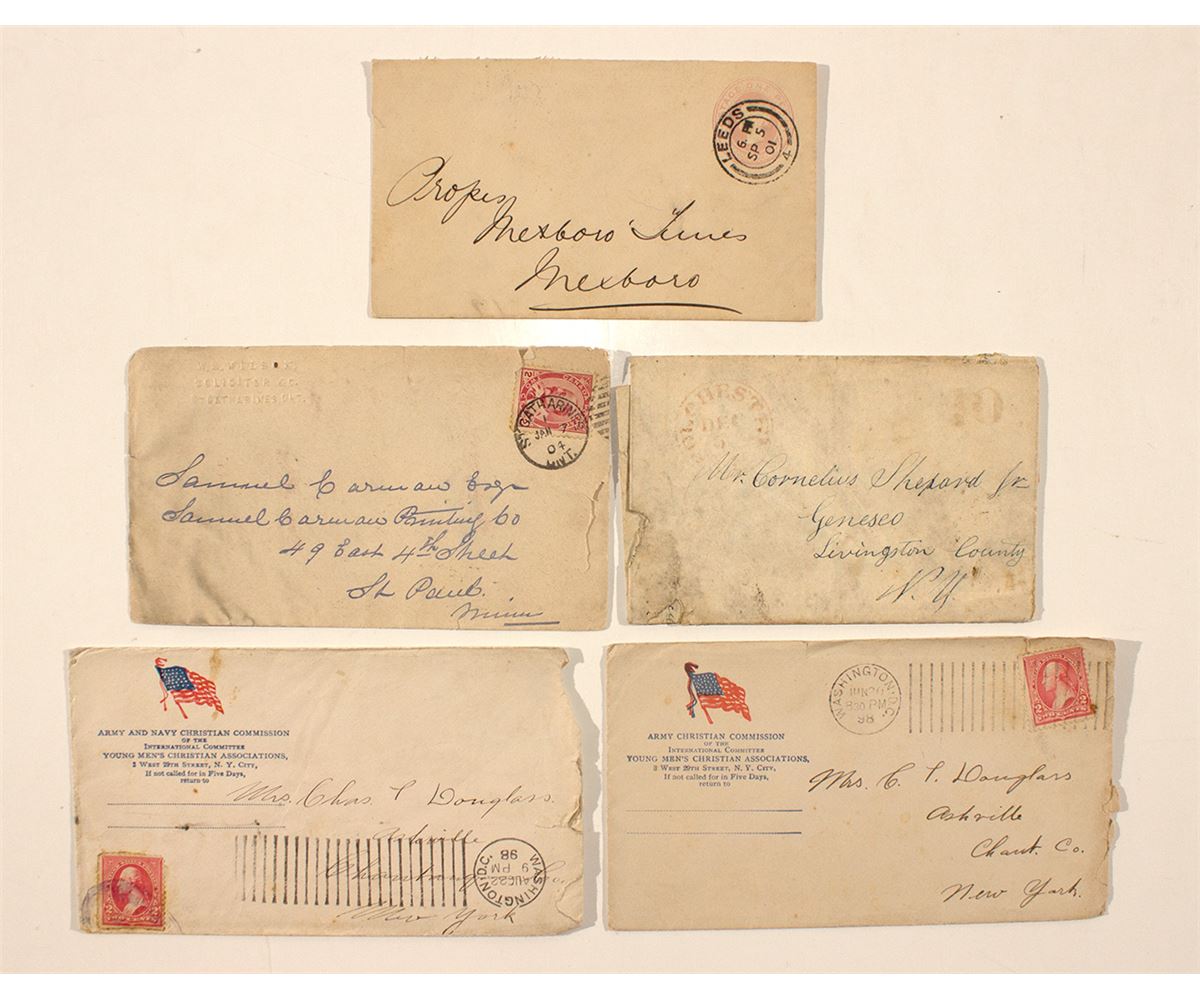 POSTAGE ONE PE
LEEDS
6. PM
SP 5
01
Propes
Mexboro' Times
Mexboro
W.A. WILSON
SOLICITOR &C.
ST CATHARINES ONT.
CANADA
2
ST CATHARINES
JAN 7
04
ONT.
Samuel Carman Esqr
Samuel Carman Printing Co
49 East 4th Street
St Paul.
Minn
DEC
10
Mr. Cornelius Shepard Jr
Geneseo
Livingston County
N. Y.
ARMY AND NAVY CHRISTIAN COMMISSION
OF THE
INTERNATIONAL COMMITTEE
YOUNG MEN'S CHRISTIAN ASSOCIATIONS,
3 WEST 29TH STREET, N. Y. CITY,
If not called for in Five Days,
return to
Mrs. Chas. T Douglass.
Ashville
Chautauq Co.
New York
WASHINGTON, D.C.
AUG 22
9 PM
98
2 2
TWO CENTS
ARMY CHRISTIAN COMMISSION
OF THE
INTERNATIONAL COMMITTEE
YOUNG MEN'S CHRISTIAN ASSOCIATIONS,
3 WEST 29TH STREET, N. Y. CITY,
If not called for in Five Days,
return to
WASHINGTON, D.C.
JUN 20
830 PM
98
2 2
TWO CENTS
Mrs. C. T. Douglass
Ashville
Chaut. Co.
New York.